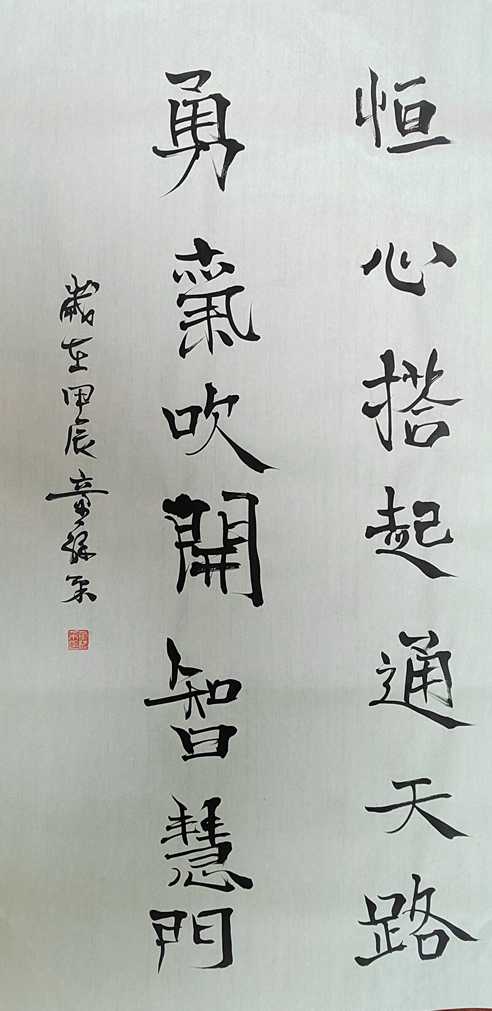 恒心搭起通天路
勇氣吹開智慧門
歲在甲辰童